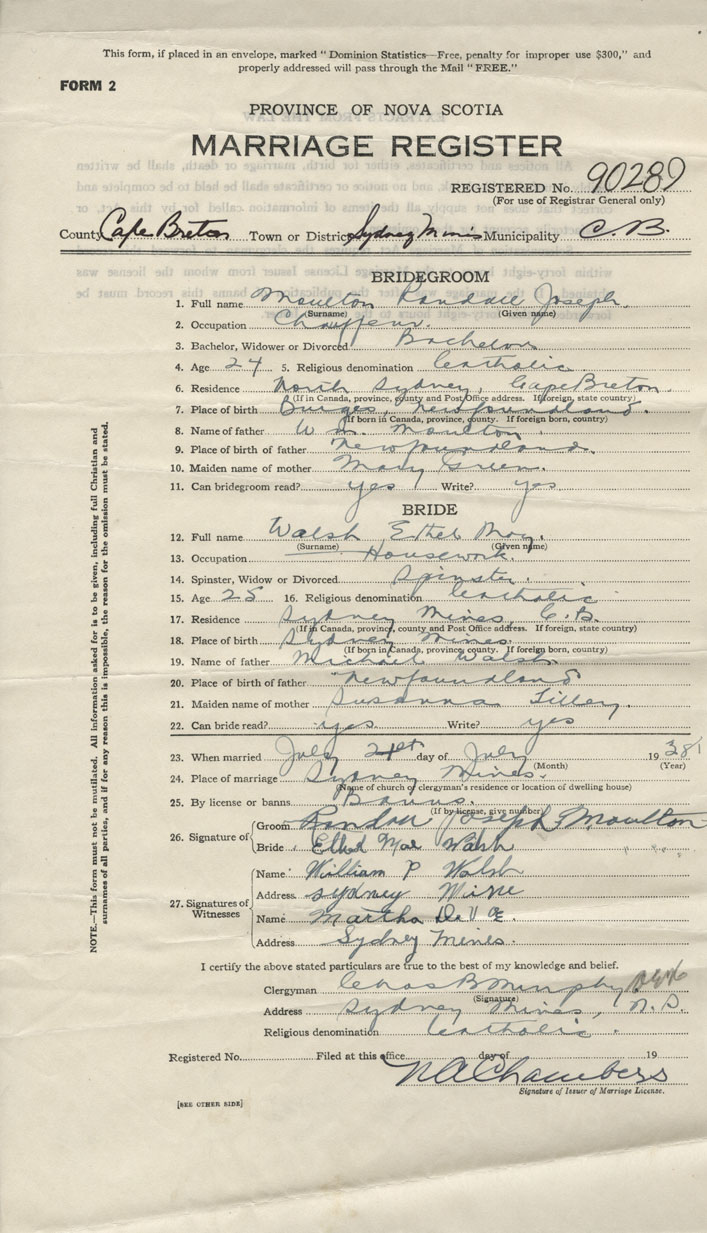 This form, if placed in an envelope, marked "Dominion Statistics—Free, penalty for improper use $300," and
properly addressed will pass through the Mail "FREE."
FORM 2
PROVINCE OF NOVA SCOTIA
MARRIAGE REGISTER
REGISTERED No. 90289
(For use of Registrar General only)
County Cape Breton Town or District Sydney Mines Municipality C. B.
BRIDEGROOM
1. Full name Moulton Randall Joseph
(Surname) (Given name)
2. Occupation Chauffeur.
3. Bachelor, Widower or Divorced Bachelor
4. Age 24 5. Religious denomination Catholic
6. Residence North Sydney, Cape Breton
(If in Canada, province, county and Post Office address. If foreign, state country)
7. Place of birth Burgeo, Newfoundland.
(If born in Canada, province, county. If foreign born, country)
8. Name of father Wm. Moulton.
9. Place of birth of father Newfoundland.
10. Maiden name of mother Mary Green.
11. Can bridegroom read? yes Write? yes
BRIDE
12. Full name Walsh Ethel May.
(Surname) (Given name)
13. Occupation Housework.
14. Spinster, Widow or Divorced Spinster.
15. Age 25 16. Religious denomination Catholic
17. Residence Sydney Mines, C.B.
(If in Canada, province, county and Post Office address. If foreign, state country)
18. Place of birth Sydney Mines.
(If born in Canada, province, county. If foreign born, country)
19. Name of father Michael Walsh
20. Place of birth of father Newfoundland
21. Maiden name of mother Susanna Tilley.
22. Can bride read? yes. Write? yes
23. When married July 21st day of July 1938
(Month) (Year)
24. Place of marriage Sydney Mines.
(Name of church or clergyman's residence or location of dwelling house)
25. By license or banns Banns.
(If by license, give number)
26. Signature of
Groom Randall Joseph Moulton
Bride Ethel Mae Walsh
27. Signatures of Witnesses
Name William P Walsh
Address Sydney Mine
Name Martha
Address Sydney Mines.
I certify the above stated particulars are true to the best of my knowledge and belief.
Clergyman Chas B Murphy
(Signature)
Address Sydney Mines, N.S.
Religious denomination Catholic.
Registered No. Filed at this office day of 19
N A Chambers
Signature of Issuer of Marriage License.
[SEE OTHER SIDE]
NOTE.—This form must not be mutilated. All information asked for is to be given, including full Christian and
surnames of all parties, and if for any reason this is impossible, the reason for the omission must be stated.